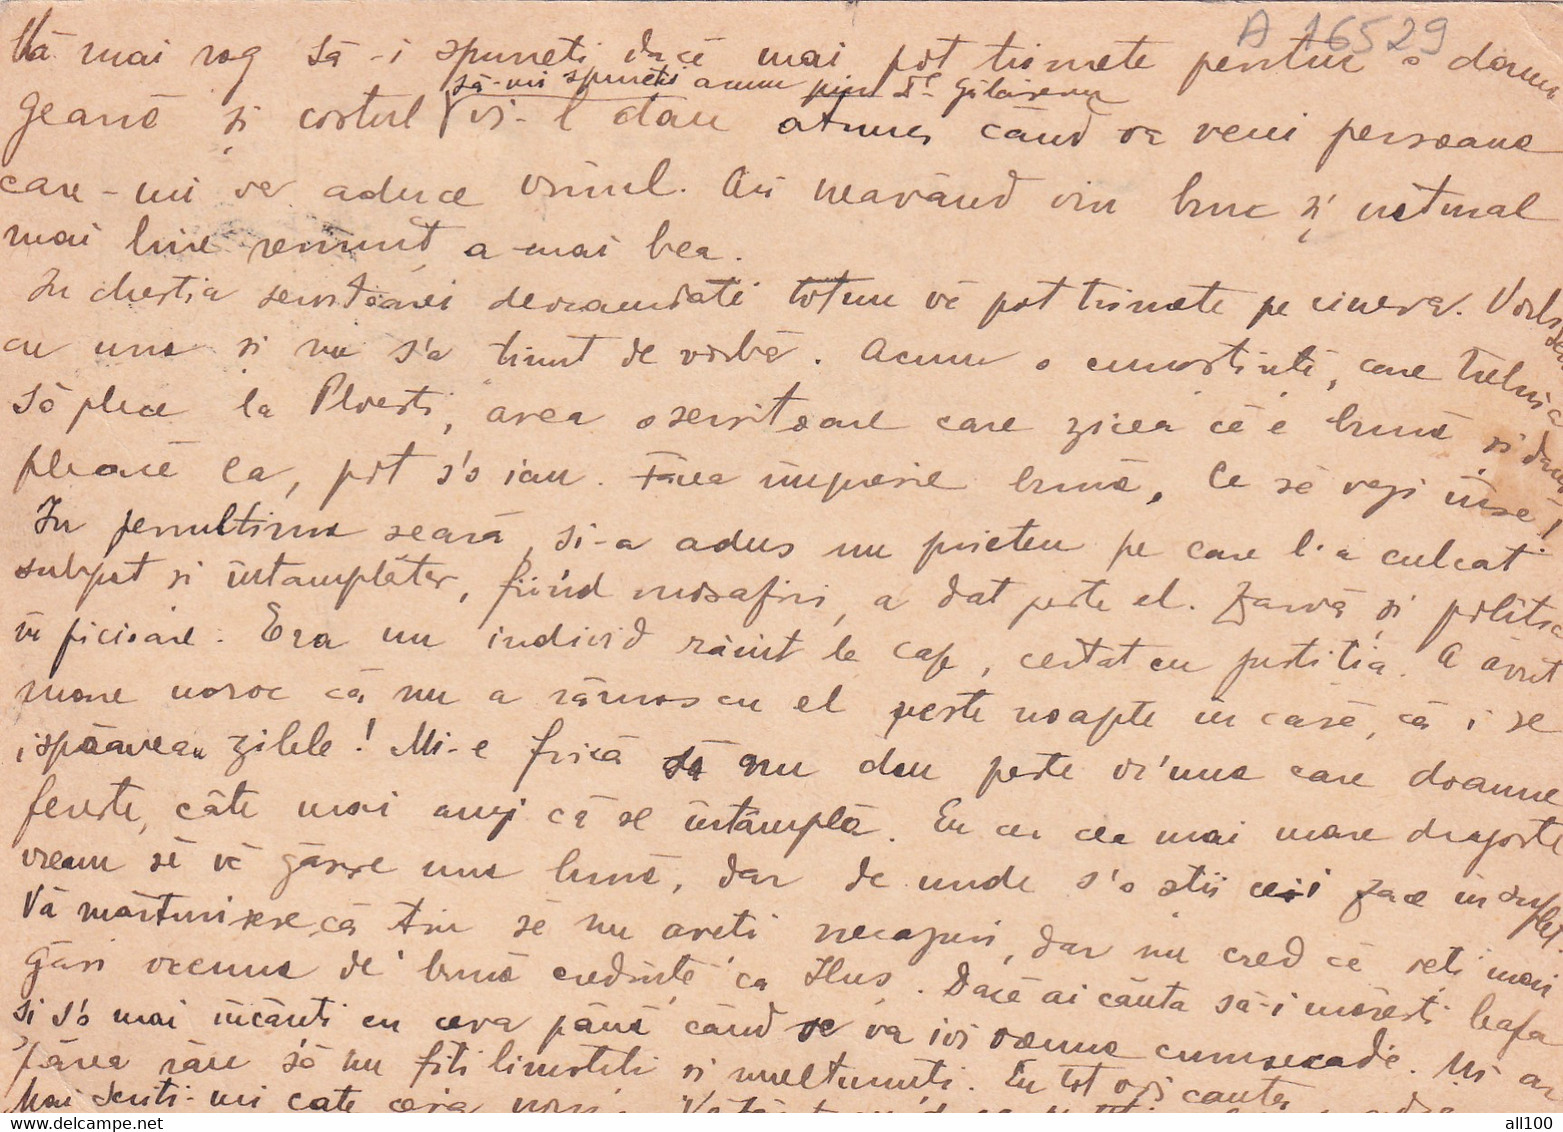 A 16529
Vă mai rog să-i spuneti dacă mai pot trimete pentru o dami
să-mi spuneti acum prin Dl
geană și costul vi-l dau atunci când va veni persoana
care-mi va aduce vinul. Aci neavând vin bun și natural
mai bine renunț a mai bea.
In chestia servitoarei deocamdată totuu vă pot trimete pe cineva. Vorb
cu una si nu s'a tinut de vorbă. Acum o cunostintă, care trebuia
să plece la Ploesti, avea o servitoare care zicea că e bună și dacă
pleacă ea, pot s'o iau. Făcea impresie bună. Ce să vezi însă!
In penultima seară, si-a adus un prieten pe care l-a culcat
subpat si întâmplător, fiind mosafiri, a dat peste el. Zarvă și politia
în picioare. Era un individ rănit la cap, certat cu justitia. A avut
mare noroc că nu a rămas cu el peste noapte in casă, că i se
ispăveau zilele! Mi-e frică să nu dau peste vr'una care doamne
fereste, câte mai auzi că se întâmplă. Eu cu cea mai mare dragoste
vream să vă găsesc una bună, dar de unde s'o stii ce-i zace in suflet.
Vă mărturisesc, că tin să nu aveti necazuri, dar nu cred că veți mai
găsi vreuna de bună credintă ca Ilus. Dacă ai căuta să-i măresti leafa
si s'o mai incânti cu ceva până când se va ivi vreuna cumsecade. Mi ar
părea rău să nu fiti linistiti si multumiti. Eu tot voi cauta
Mai scriti-mi cate ceva
all100